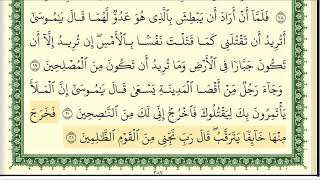 فَلَمَّآ أَنْ أَرَادَ أَن يَبْطِشَ بِٱلَّذِى هُوَ عَدُوٌّ لَّهُمَا قَالَ يَـٰمُوسَىٰٓ
أَتُرِيدُ أَن تَقْتُلَنِى كَمَا قَتَلْتَ نَفْسًۢا بِٱلْأَمْسِ ۖ إِن تُرِيدُ إِلَّآ أَن
تَكُونَ جَبَّارًا فِى ٱلْأَرْضِ وَمَا تُرِيدُ أَن تَكُونَ مِنَ ٱلْمُصْلِحِينَ ١٩
وَجَآءَ رَجُلٌ مِّنْ أَقْصَا ٱلْمَدِينَةِ يَسْعَىٰ قَالَ يَـٰمُوسَىٰٓ إِنَّ ٱلْمَلَأَ
يَأْتَمِرُونَ بِكَ لِيَقْتُلُوكَ فَٱخْرُجْ إِنِّى لَكَ مِنَ ٱلنَّـٰصِحِينَ ٢٠ فَخَرَجَ
مِنْهَا خَآئِفًا يَتَرَقَّبُ ۖ قَالَ رَبِّ نَجِّنِى مِنَ ٱلْقَوْمِ ٱلظَّـٰلِمِينَ ٢١
٣٨٧